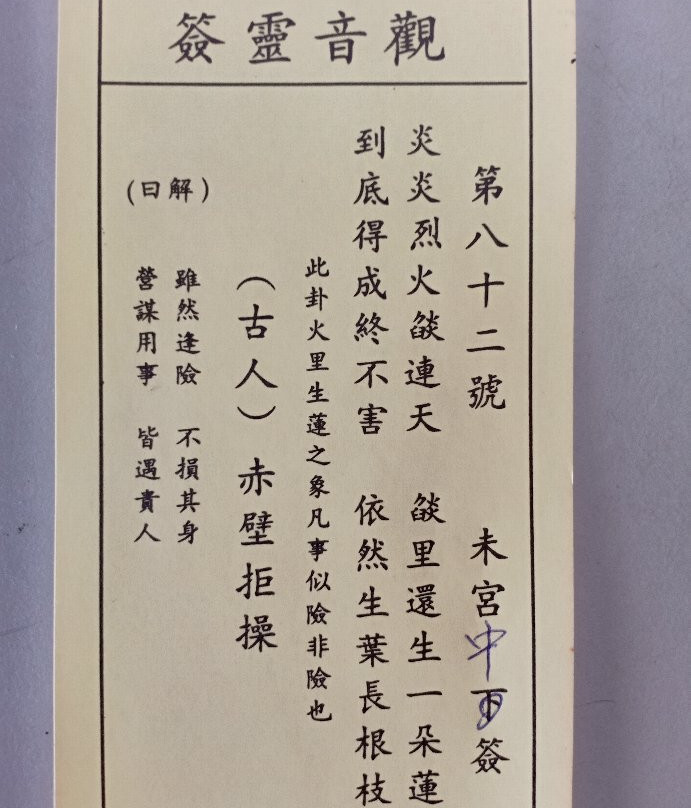 觀音靈簽
第八十二號 未宮中下簽
炎炎烈火燄連天 燄里還生一朵蓮
到底得成終不害 依然生葉長根枝
此卦火里生蓮之象凡事似險非險也
(古人)赤壁拒操
(解曰)
雖然逢險 不損其身
營謀用事 皆遇貴人